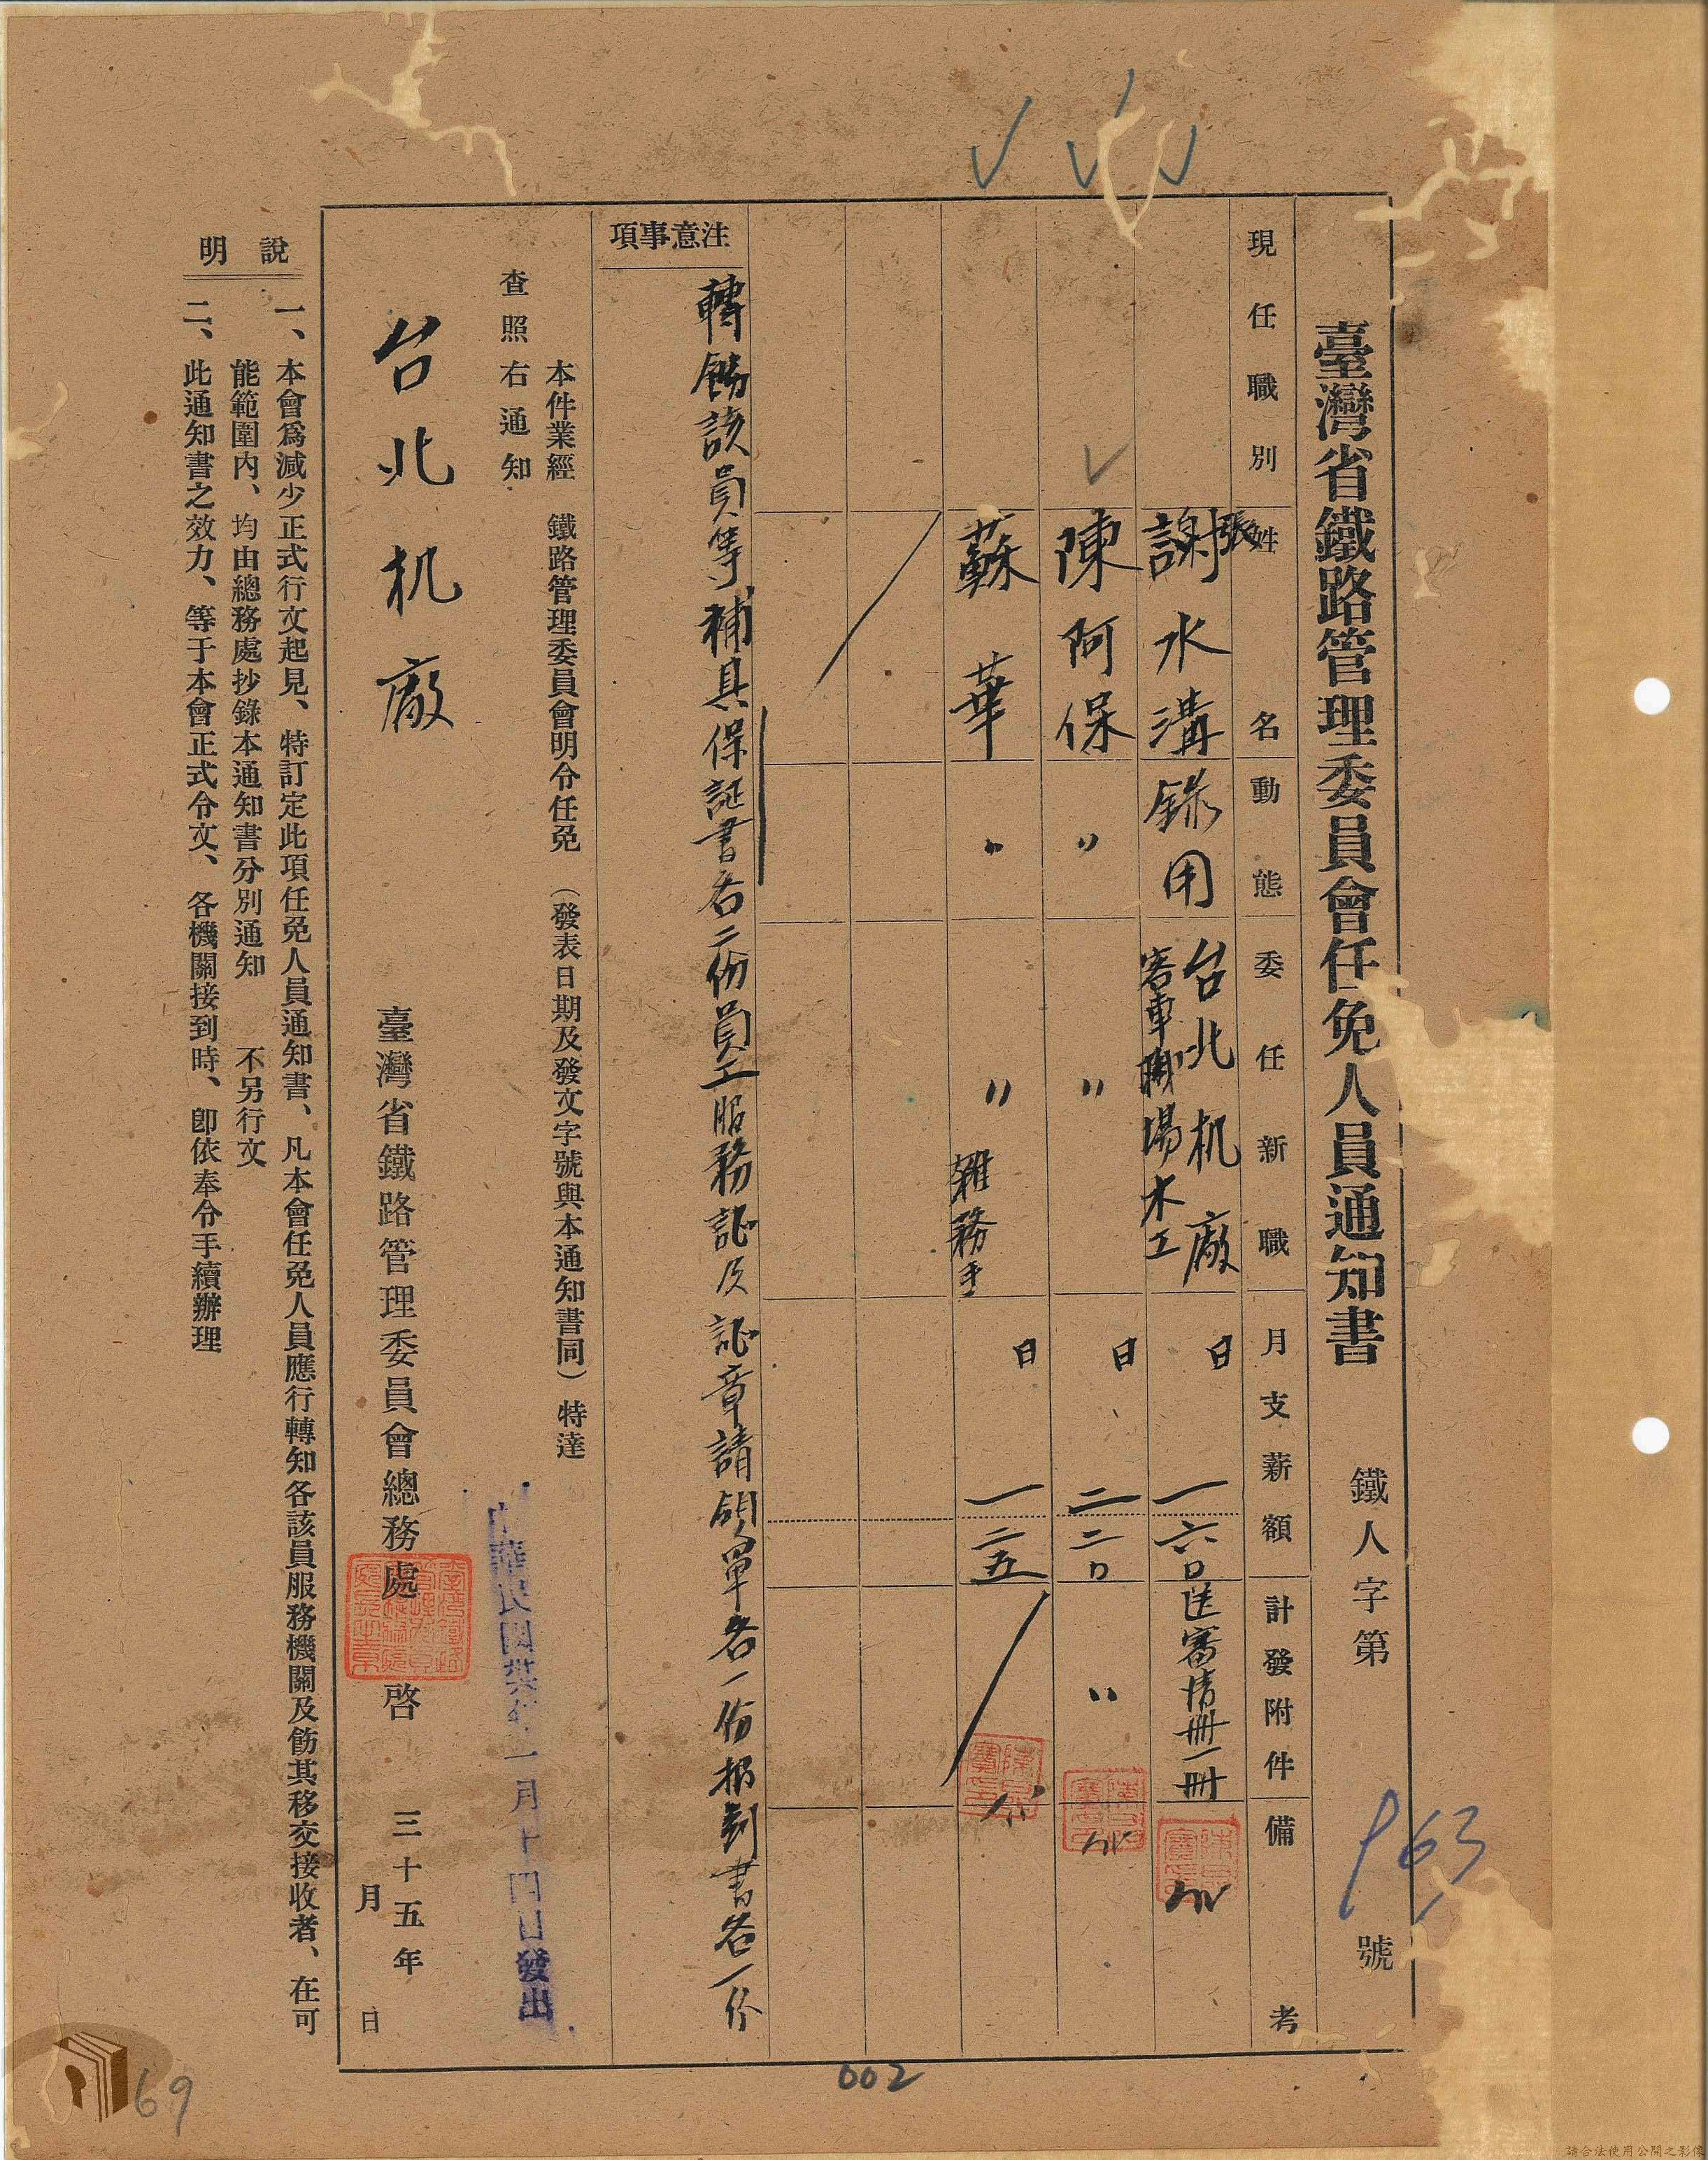 臺灣省鐵路管理委員會任免人員通知書
鐵人字第963號
現任職別
姓名
動態
委任新職
月支薪額
計發附件
備考
張
謝水溝
錄用
台北机廠
客車職場木工
日
一六〇
送審清冊一冊
陳阿保
〃
〃
日
二二〇
〃
蘇華
〃
〃
雜務手
日
一二五
注意事項
轉飭該員等補具保証書各二份員工服務証及証章請領單各一份報到書各一份
本件業經 鐵路管理委員會明令任免(發表日期及發文字號與本通知書同)特達
查照右通知
台北机廠
中華民國卅五年一月十四日發出
臺灣省鐵路管理委員會總務處 啓
三十五年
月 日
說明
一、本會爲減少正式行文起見、特訂定此項任免人員通知書、凡本會任免人員應行轉知各該員服務機關及飭其移交接收者、在可
能範圍內、均由總務處抄錄本通知書分別通知 不另行文
二、此通知書之效力、等于本會正式令文、各機關接到時、卽依奉令手續辦理
002
69
請合法使用公開之影像